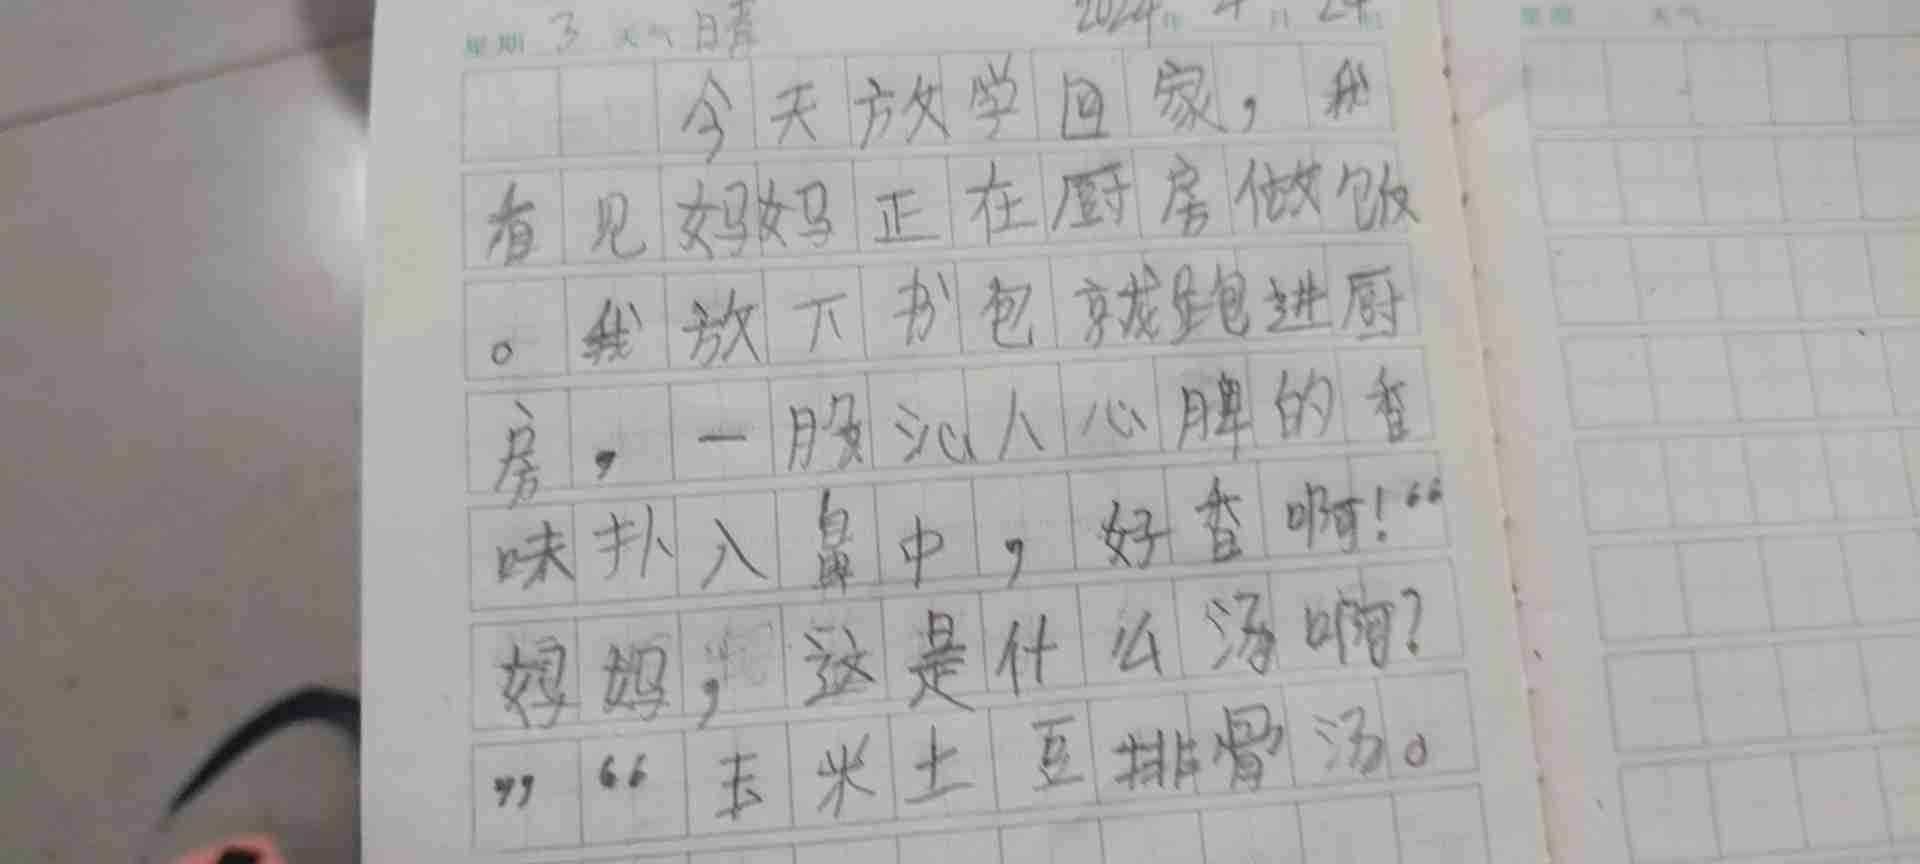 星期 3 天气 晴 2024年 4 月 24 日
今天放学回家，我
看见妈妈正在厨房做饭
。我放下书包就跑进厨
房，一股沁人心脾的香
味扑入鼻中，好香啊！“
妈妈，这是什么汤啊？
”“玉米土豆排骨汤。
星期 天气